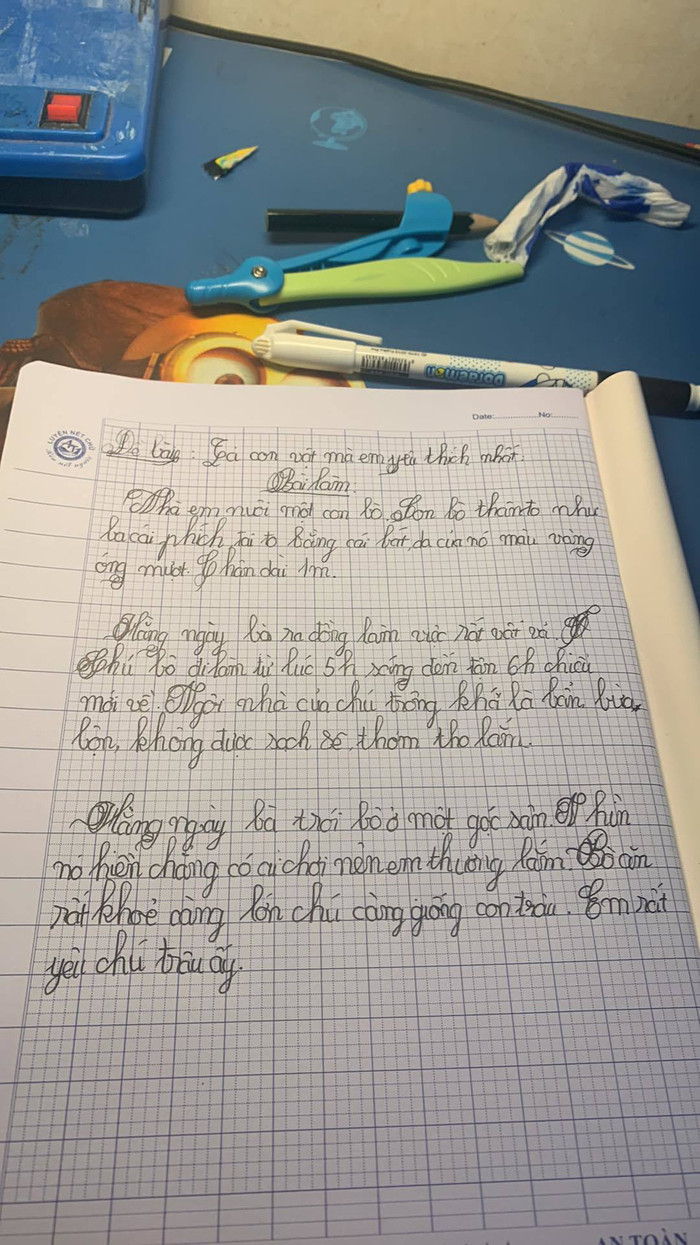 Date: No:
LUYỆN NÉT CHỮ
Đề bài: Tả con vật mà em yêu thích nhất.
Bài làm
Nhà em nuôi một con bò. Con bò thân to như
ba cái phích, tai to bằng cái bát, da của nó màu vàng
óng mượt. Chân dài 1m.
Hằng ngày bò ra đồng làm việc rất vất vả.
Chú bò đi làm từ lúc 5h sáng đến tận 6h chiều
mới về. Ngôi nhà của chú trông khá là bẩn, bừa
bộn, không được sạch sẽ, thơm tho lắm.
Hằng ngày bà trói bò ở một góc sân. Nhìn
nó hiền chẳng có ai chơi nên em thương lắm. Bò ăn
rất khoẻ càng lớn chú càng giống con trâu. Em rất
yêu chú trâu ấy.
AN TOÀN